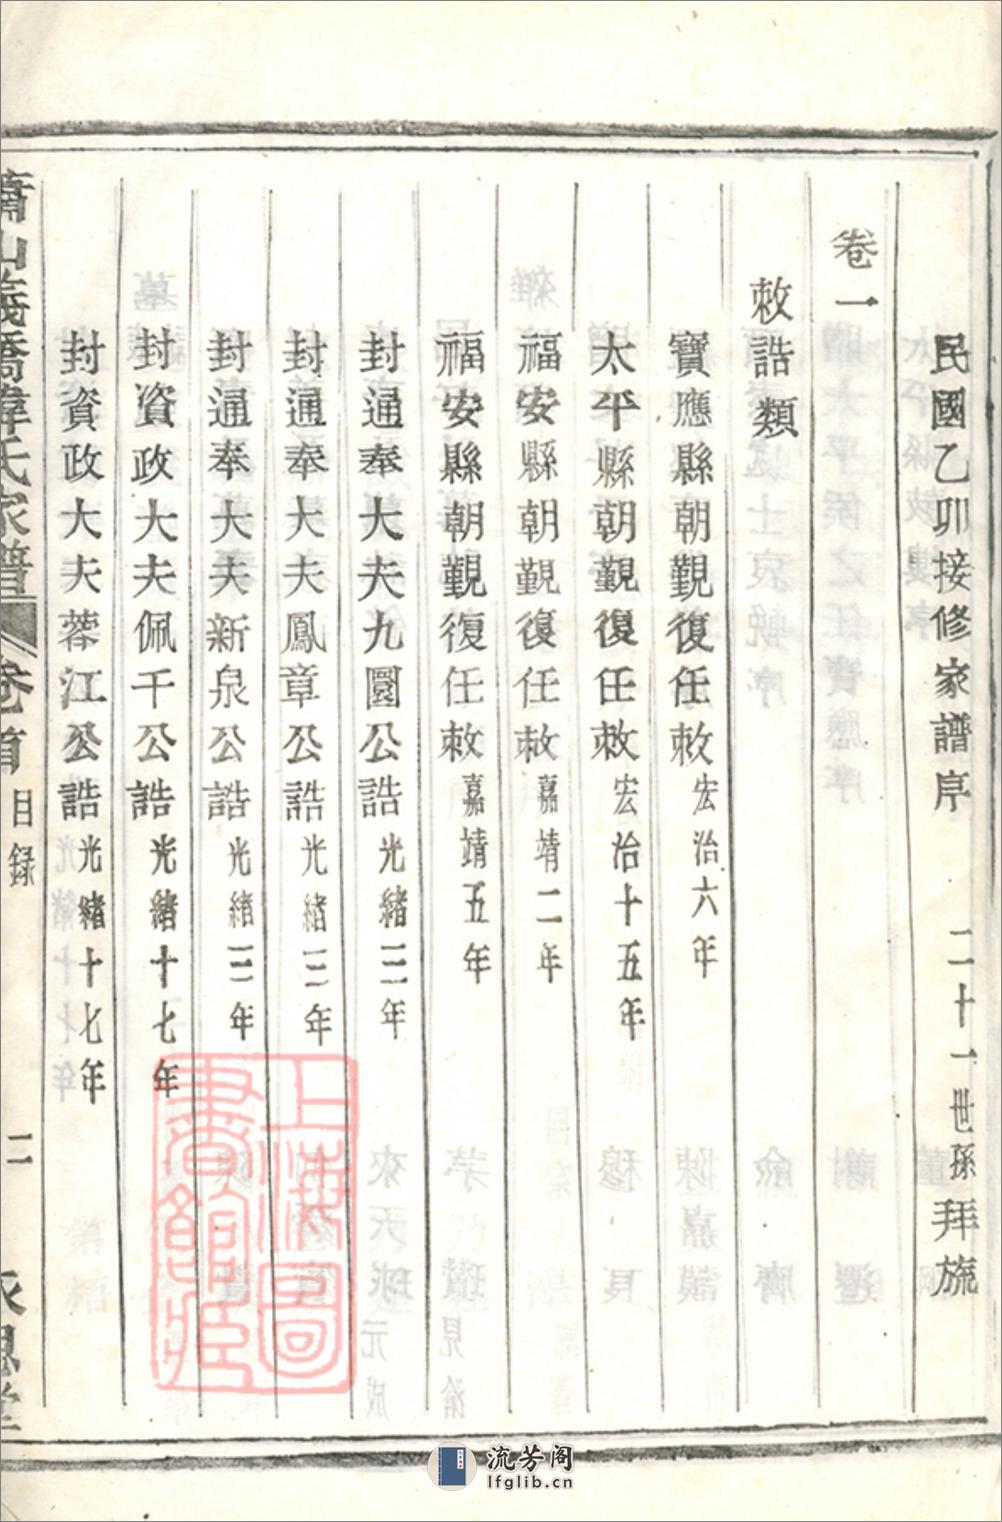 民國乙卯接修家譜序 二十一世孫拜旒
卷一
敕誥類
寶應縣朝覲復任敕 宏治六年
太平縣朝覲復任敕 宏治十五年
福安縣朝覲復任敕 嘉靖二年
福安縣朝覲復任敕 嘉靖五年
封通奉大夫九圜公誥 光緒三年
封通奉大夫鳳章公誥 光緒三年
封通奉大夫新泉公誥 光緒三年
封資政大夫佩干公誥 光緒十七年
封資政大夫蓉江公誥 光緒十七年
蕭山義橋韓氏家譜 卷首 目録 二
上海圖書館藏
流芳阁
lfglib.cn